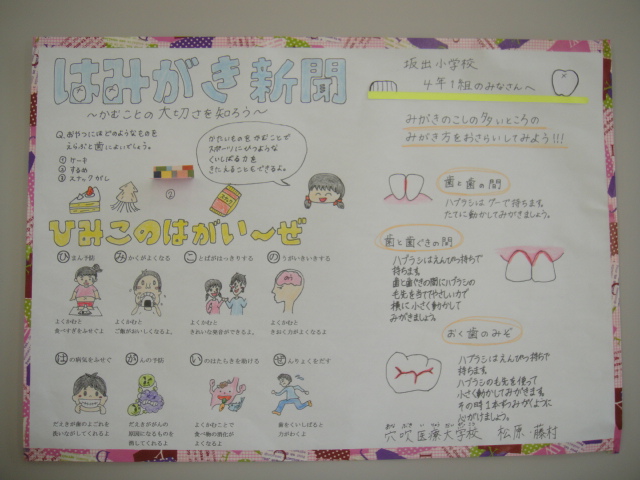 はみがき新聞
～かむことの大切さを知ろう～
Q.おやつにはどのようなものを
えらぶと歯によいでしょう。
① ケーキ
② するめ
③ スナックがし
②
かたいものをかむことで
スポーツにひつような
くいしばる力を
きたえることもできるよ。
ひみこのはがい～ぜ
ひまん予防
よくかむと
食べすぎをふせぐよ
みかくがよくなる
よくかむと
ご飯がおいしくなるよ。
ことばがはっきりする
よくかむと
きれいな発音ができるよ。
のうがいきいきする
よくかむと
きおく力がよくなるよ
はの病気をふせぐ
だえきが歯のよごれを
洗いながしてくれるよ
がんの予防
だえきががんの
原因になるものを
消してくれるよ
いのはたらきを助ける
よくかむことで
食べ物の消化が
よくなるよ
ぜんりょくをだす
歯をくいしばると
力がわくよ
坂出小学校
4年1組のみなさんへ
みがきのこしの多いところの
みがき方をおさらいしてみよう!!!
歯と歯の間
ハブラシはグーで持ちます。
たてに動かしてみがきましょう。
歯と歯ぐきの間
ハブラシはえんぴつ持ちで
持ちます。
歯と歯ぐきの間にハブラシの
毛先を当ててやさしい力で
横に小さく動かして
みがきましょう。
おく歯のみぞ
ハブラシはえんぴつ持ちで
持ちます。
ハブラシの毛先を使って
小さく動かしてみがきます。
その時1本ずつみがくように
心がけましょう。
穴吹医療大学校 松原・藤村